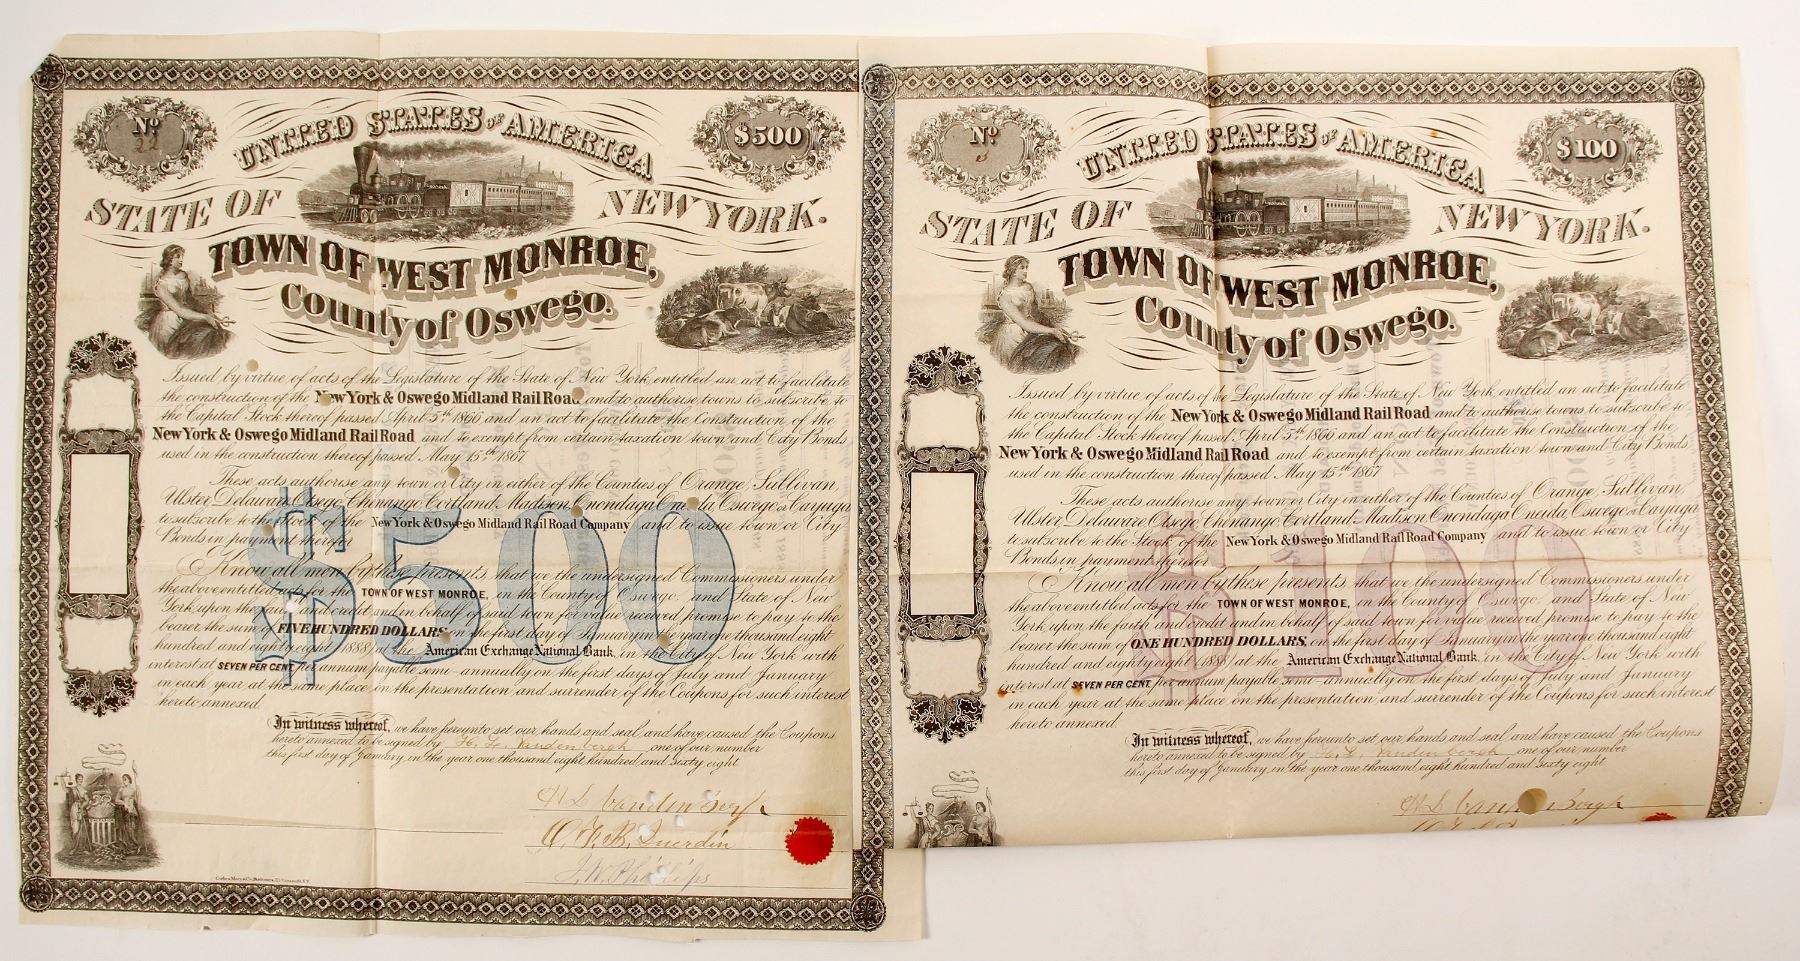 Nº
22
UNITED STATES OF AMERICA
$500
STATE OF NEW YORK.
TOWN OF WEST MONROE,
County of Oswego.
Issued by virtue of acts of the Legislature of the State of New York, entitled an act to facilitate
the construction of the New York & Oswego Midland Rail Road and to authorise towns to subscribe to
the Capital Stock thereof passed April 5th 1866 and an act to facilitate the Construction of the
New York & Oswego Midland Rail Road and to exempt from certain taxation town and City Bonds
used in the construction thereof passed May 15th 1867
These acts authorise any town or City in either of the Counties of Orange, Sullivan,
Ulster, Delaware, Otsego, Chenango, Cortland, Madison, Onondaga, Oneida, Oswego & Cayuga
to subscribe to the Stock of the New York & Oswego Midland Rail Road Company and to issue town or City
Bonds in payment therefor
$500
Know all men by these presents, that we the undersigned Commissioners under
the above entitled acts for the TOWN OF WEST MONROE, in the County of Oswego and State of New
York upon the faith and credit and in behalf of said town for value received promise to pay to the
bearer the sum of FIVE HUNDRED DOLLARS, on the first day of January in the year one thousand eight
hundred and eighty eight 1888 at the American Exchange National Bank, in the City of New York with
interest at SEVEN PER CENT, per annum payable semi-annually on the first days of July and January
in each year at the same place on the presentation and surrender of the Coupons for such interest
hereto annexed.
In witness whereof, we have hereunto set our hands and seal and have caused the Coupons
hereto annexed to be signed by H. L. Vandenbergh one of our number
this first day of January, in the year one thousand eight hundred and sixty eight
H L Vandenbergh
J. W. Phillips
Nº
UNITED STATES OF AMERICA
$100
STATE OF NEW YORK.
TOWN OF WEST MONROE,
County of Oswego.
Issued by virtue of acts of the Legislature of the State of New York, entitled an act to facilitate
the construction of the New York & Oswego Midland Rail Road and to authorise towns to subscribe to
the Capital Stock thereof passed April 5th 1866 and an act to facilitate the Construction of the
New York & Oswego Midland Rail Road and to exempt from certain taxation town and City Bonds
used in the construction thereof passed May 15th 1867
These acts authorise any town or City in either of the Counties of Orange, Sullivan,
Ulster, Delaware, Otsego, Chenango, Cortland, Madison, Onondaga, Oneida, Oswego & Cayuga
to subscribe to the Stock of the New York & Oswego Midland Rail Road Company and to issue town or City
Bonds in payment therefor
$100
Know all men by these presents, that we the undersigned Commissioners under
the above entitled acts for the TOWN OF WEST MONROE, in the County of Oswego and State of New
York upon the faith and credit and in behalf of said town for value received promise to pay to the
bearer the sum of ONE HUNDRED DOLLARS, on the first day of January in the year one thousand eight
hundred and eighty eight 1888 at the American Exchange National Bank, in the City of New York with
interest at SEVEN PER CENT, per annum payable semi-annually on the first days of July and January
in each year at the same place on the presentation and surrender of the Coupons for such interest
hereto annexed.
In witness whereof, we have hereunto set our hands and seal and have caused the Coupons
hereto annexed to be signed by H. L. Vandenbergh one of our number
this first day of January, in the year one thousand eight hundred and sixty eight
H L Vandenbergh